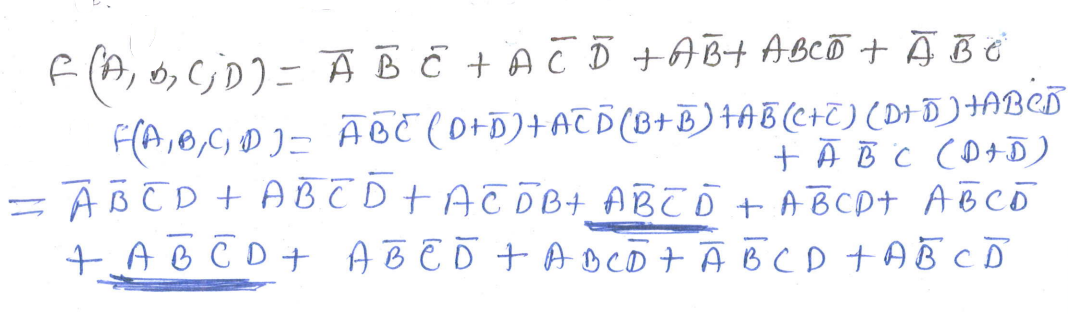 F(A, B, C, D) = A̅ B̅ C̅ + A C̅ D̅ + AB̅ + ABCD̅ + A̅ B̅ C
F(A,B,C,D) = A̅B̅C̅ (D+D̅) + AC̅D̅ (B+B̅) + AB̅ (C+C̅) (D+D̅) + ABCD̅
+ A̅ B̅ C (D+D̅)
= A̅ B̅ C̅ D + AB̅C̅D̅ + AC̅D̅B + AB̅C̅D̅ + AB̅CD + AB̅CD̅
+ AB̅C̅D + AB̅C̅D̅ + ABCD̅ + A̅ B̅ C D + AB̅CD̅